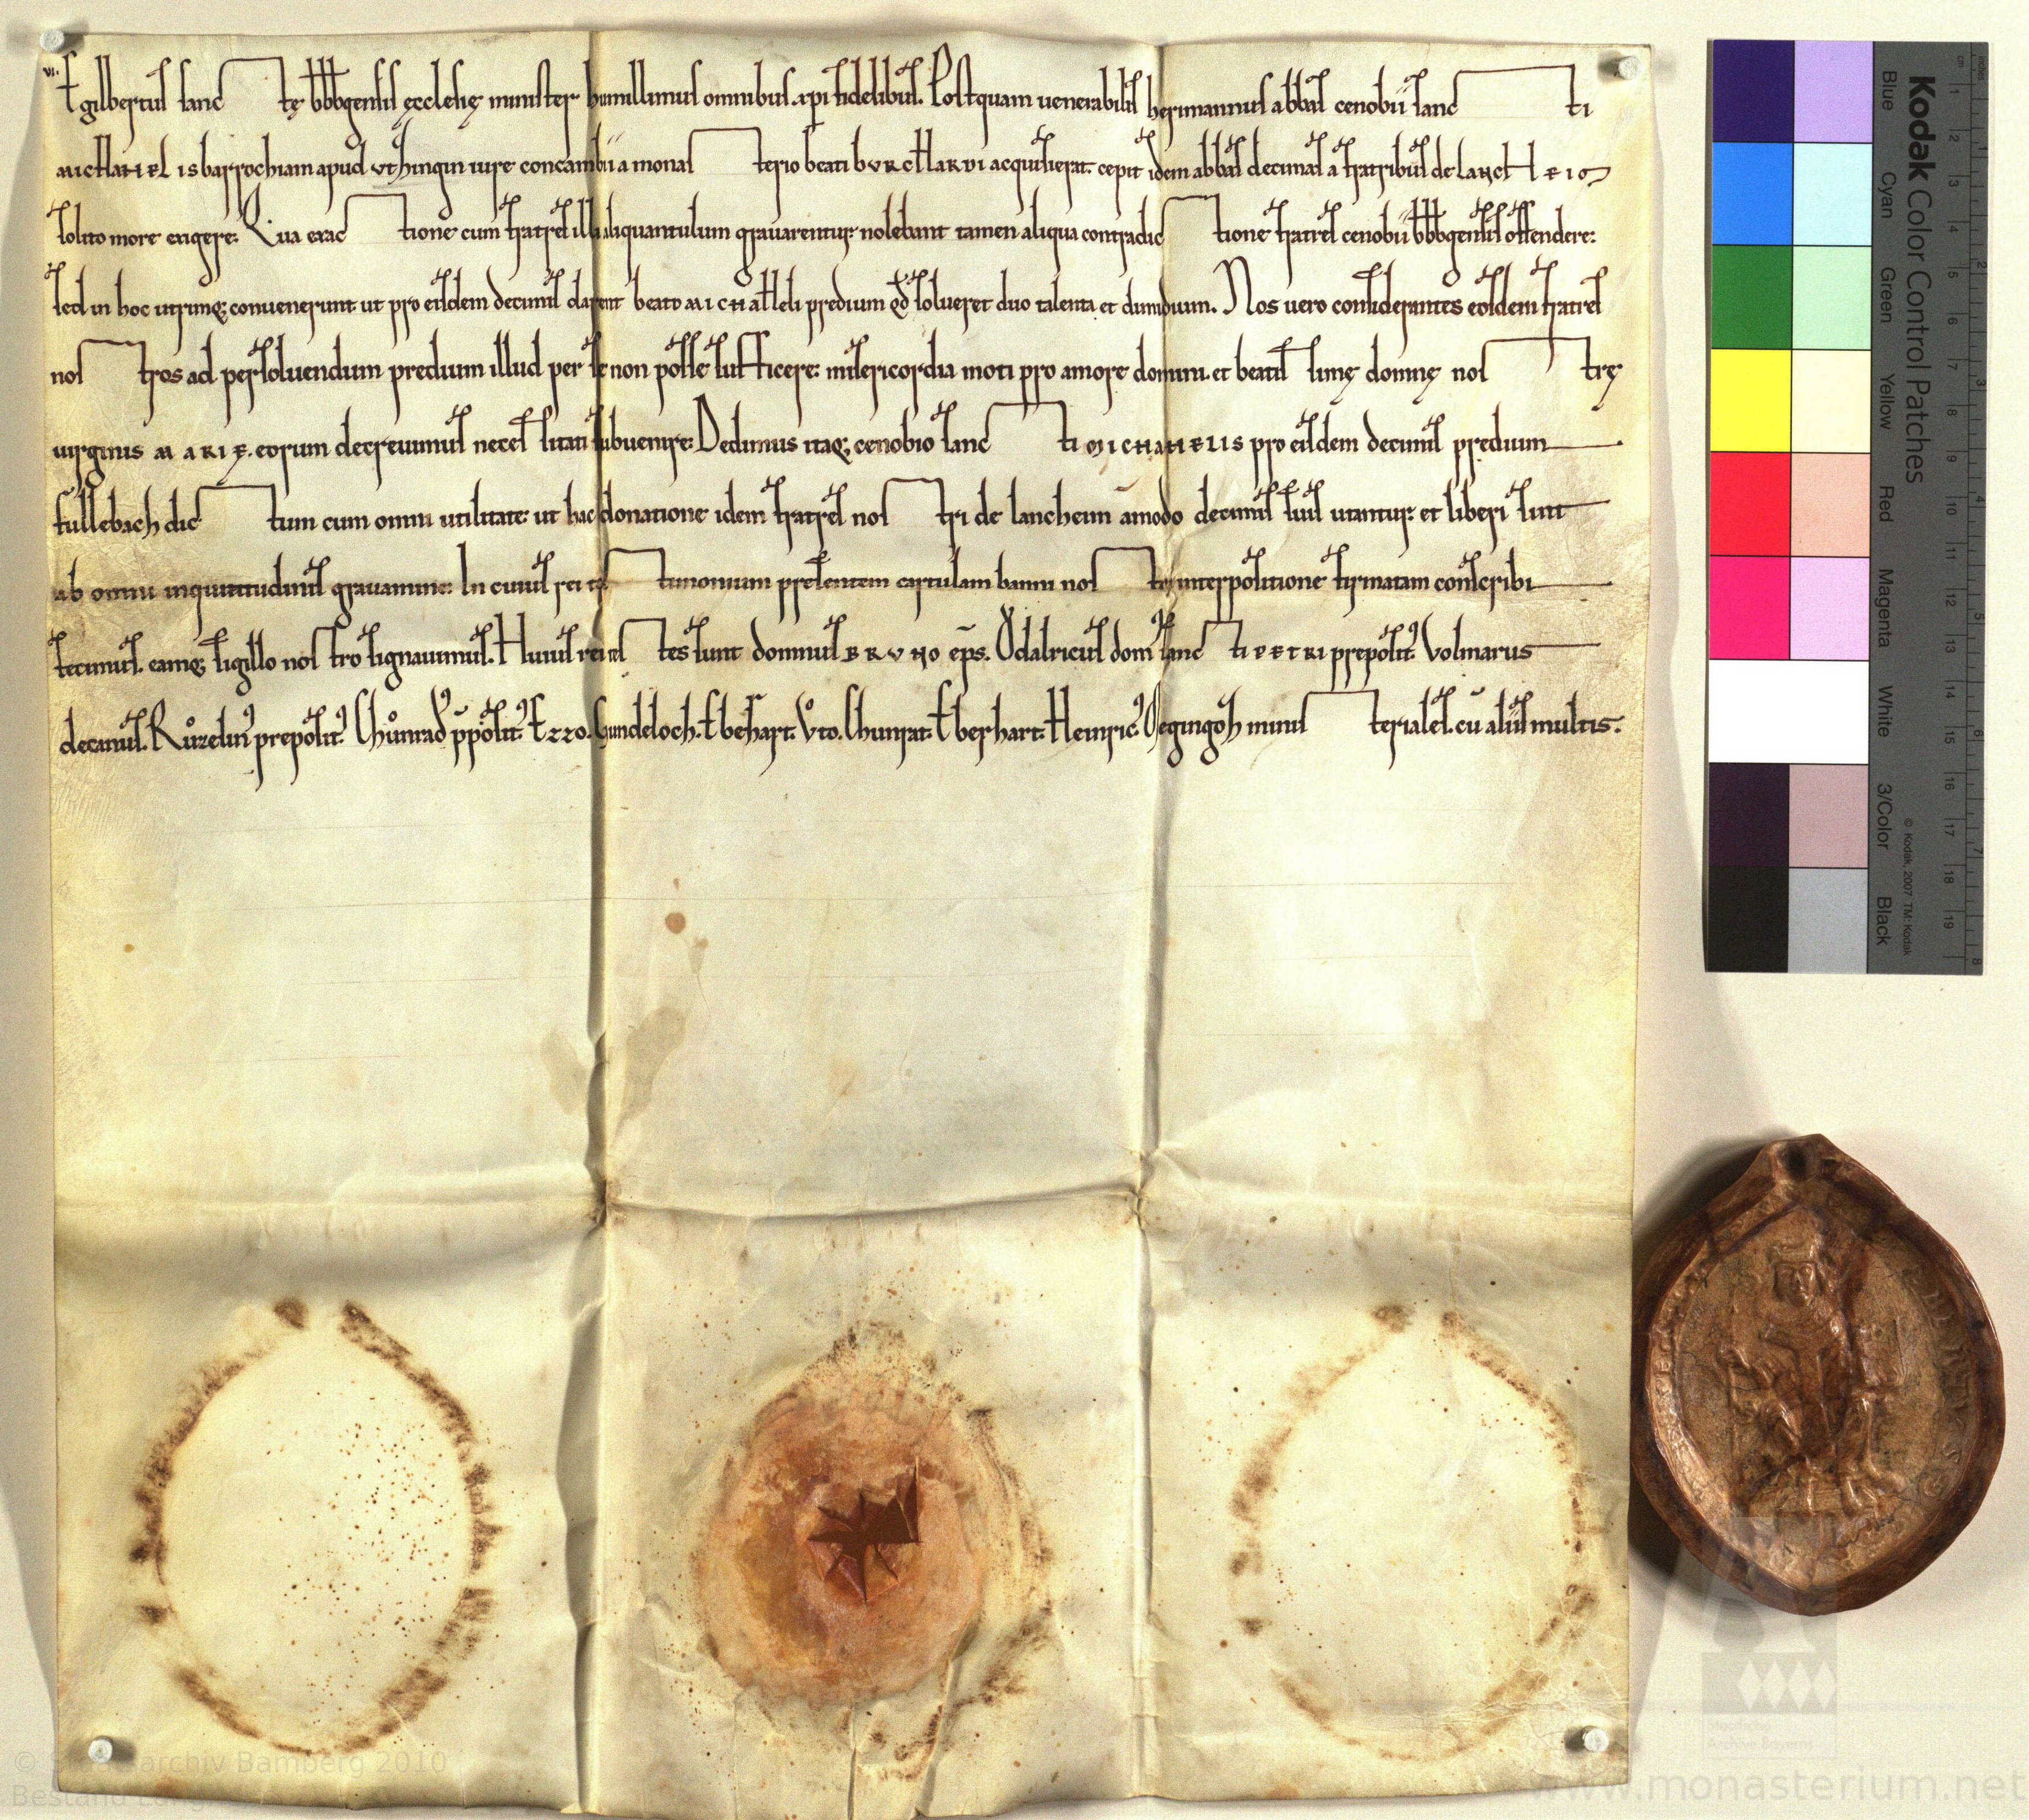 Egilbertus sanctę bbbgensis ęcclesię minister humillimus omnibus xpi fidelibus. Postquam uenerabilis herimannus abbas cenobii sancti
MICHAHELIS barrochiam apud vthingin iure concambii a monasterio beati bVRCHARDI acquisierat. cepit idem abbas decimas a fratribus de LANCHEIM
solito more exigere. Qua exactione cum fratres illi aliquantulum grauarentur. nolebant tamen aliqua contradictione fratres cenobii bbbgensis offendere.
sed in hoc utrimq; conuenerunt ut pro eisdem decimis darent beato MICHAHeli predium qđ solueret duo talenta et dimidium. Nos uero considerantes eosdem fratres
nostros ad persoluendum predium illud per se non posse sufficere. misericordia moti pro amore domini. et beatissimę domnę nostrę
uirginis MARIĘ. eorum decreuimus necessitati subuenire. Dedimus itaq; cenobio sancti MICHAHELIS pro eisdem decimis predium
fullebach dictum cum omni utilitate. ut hac donatione idem fratres nostri de lancheim amodo decimis suis utantur. et liberi sint
ab omni inquietudinis grauamine. In cuius rei testimonium presentem cartulam banni nostri interpositione firmatam conscribi
fecimus. eamq; sigillo nostro signauimus. Huius rei testes sunt domnus BRVNO ep̄s. Odalricus dom' sancti PETRI preposit'. Volmarus
decanus. Růzelin' preposit'. Chůnrad' p̄posit'. Ezzo. Gundeloch. Ebehart. Vto. Chunrat. Eberhart. Heinric'. Megingoh ministeriales. cū aliis multis.
Kodak Color Control Patches
Blue Cyan Green Yellow Red Magenta White 3/Color Black
© Kodak, 2007 TM: Kodak
© Staatsarchiv Bamberg 2010
Staatliche
Archive Bayerns
www.monasterium.net